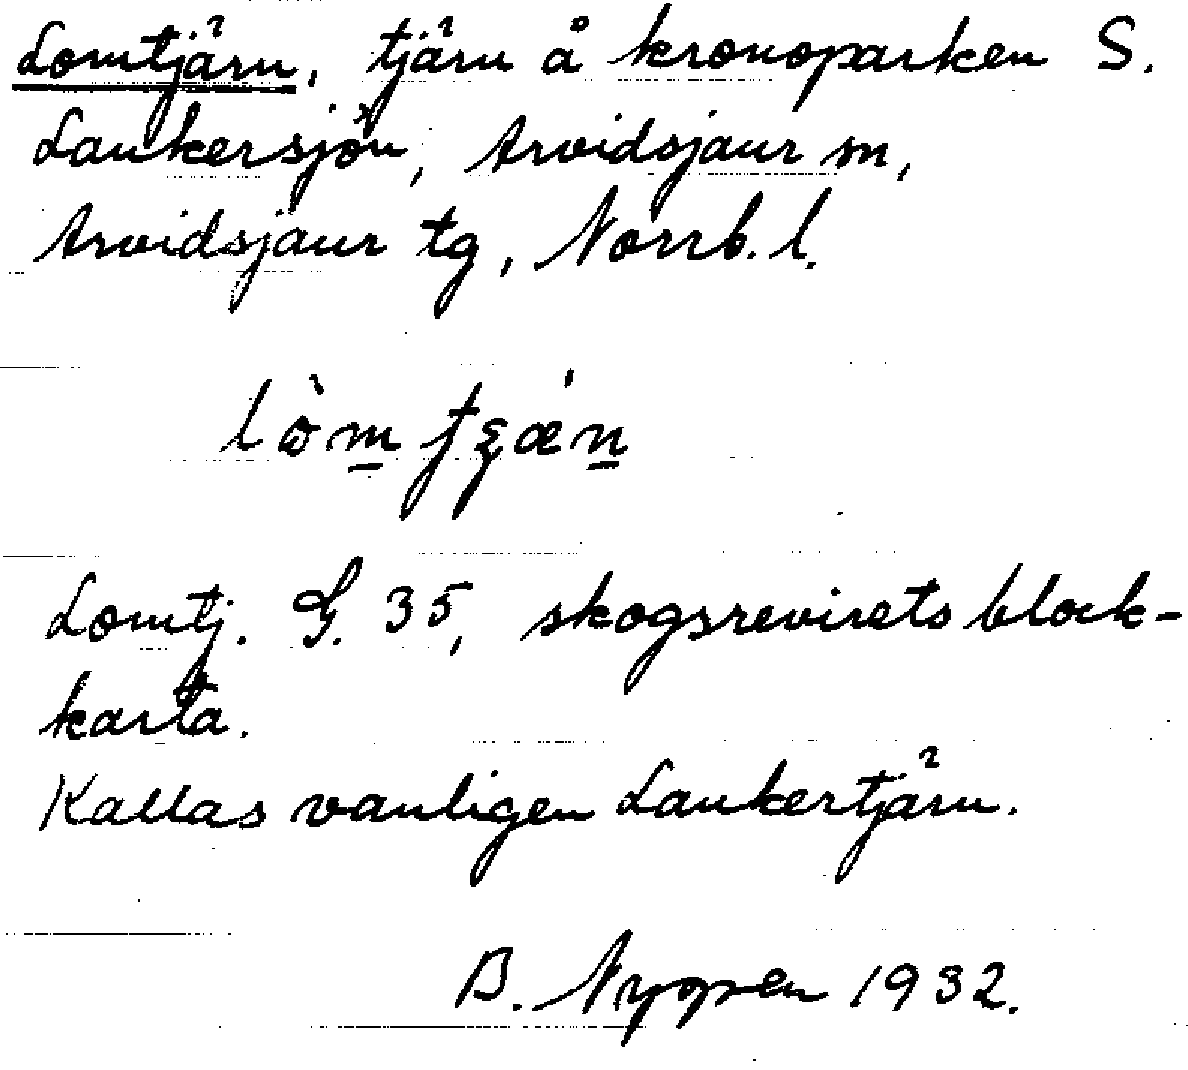 Lomtjärn, tjärn å kronoparken S.
Laukersjön, Arvidsjaur sn,
Arvidsjaur tg, Norrb. l.
Lomtj. G. 35, skogsrevirets block-
karta.
Kallas vanligen Laukertjärn.
B. 1932.